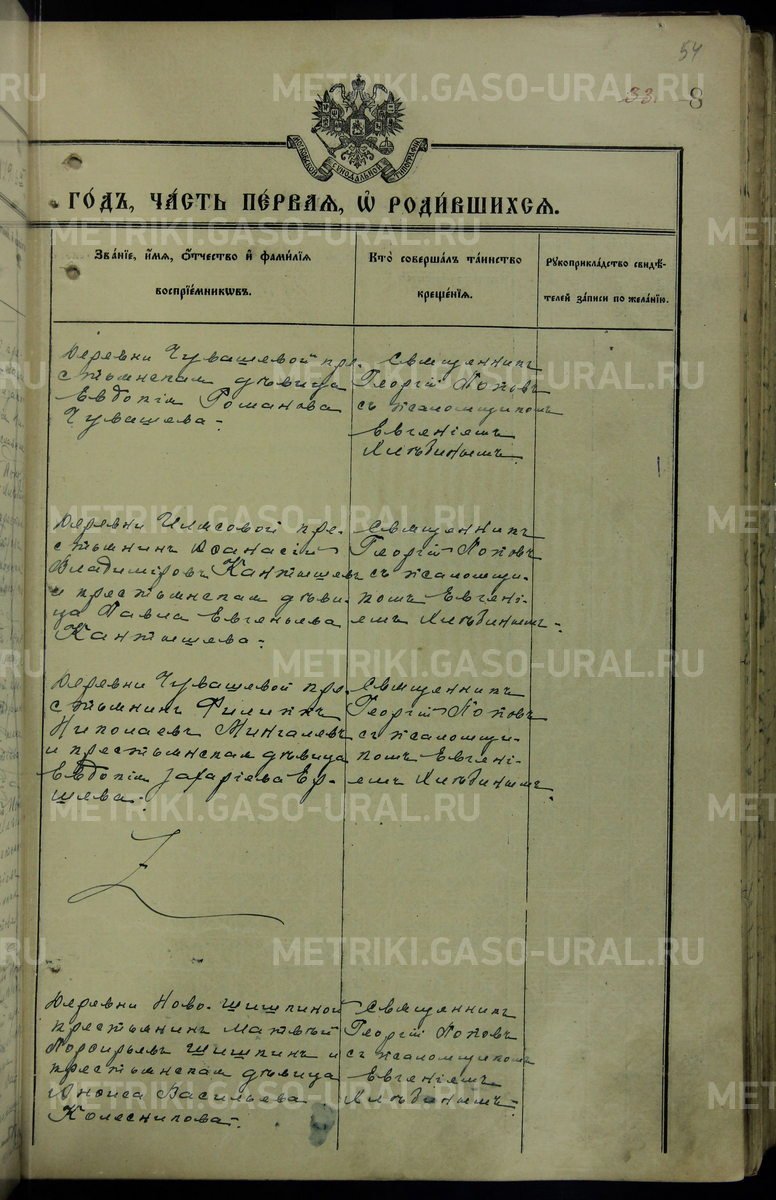 54
33.
8
МОСКОВСКОЙ СѴНОДАЛЬНОЙ ТИПОГРАФІИ
ГО́ДЪ, ЧА́СТЬ ПЕ́РВАѦ, Ѡ҆ РОДИ́ВШИХСѦ.
Зва́нїе, и҆́мѧ, ѻ҆́тчество и҆ фами́лїѧ
воспрїе́мникѡвъ.
Кто̀ соверша́лъ та́инство
креще́нїѧ.
Рꙋкоприкла́дство свидѣ́-
телей за́писи по жела́нїю.
Деревни Чувашевой кре-
стьянская дѣвица
Евдокія Романова
Чувашева.
Священникъ
Георгій Поповъ
съ псаломщикомъ
Евгеніемъ
Хлѣбинымъ
Деревни Илясовой кре-
стьянинъ Аѳанасій
Владиміровъ Кантышевъ
и крестьянская дѣви-
ца Павла Евгеньева
Кантышева.
Священникъ
Георгій Поповъ
съ псаломщи-
комъ Евгені-
емъ Хлѣбинымъ.
Деревни Чувашевой кре-
стьянинъ Филиппъ
Николаевъ Мингалевъ
и крестьянская дѣвица
Евдокія Захаріева Ер-
шева.
Священникъ
Георгій Поповъ
съ псаломщи-
комъ Евгені-
емъ Хлѣбинымъ.
Деревни Ново-Шишкиной
крестьянинъ Матвѣй
Порфирьевъ Шишкинъ и
крестьянская дѣвица
Анфиса Васильева
Колесникова.
Священникъ
Георгій Поповъ
съ псаломщикомъ
Евгеніемъ
Хлѣбинымъ.
METRIKI.GASO-URAL.RU